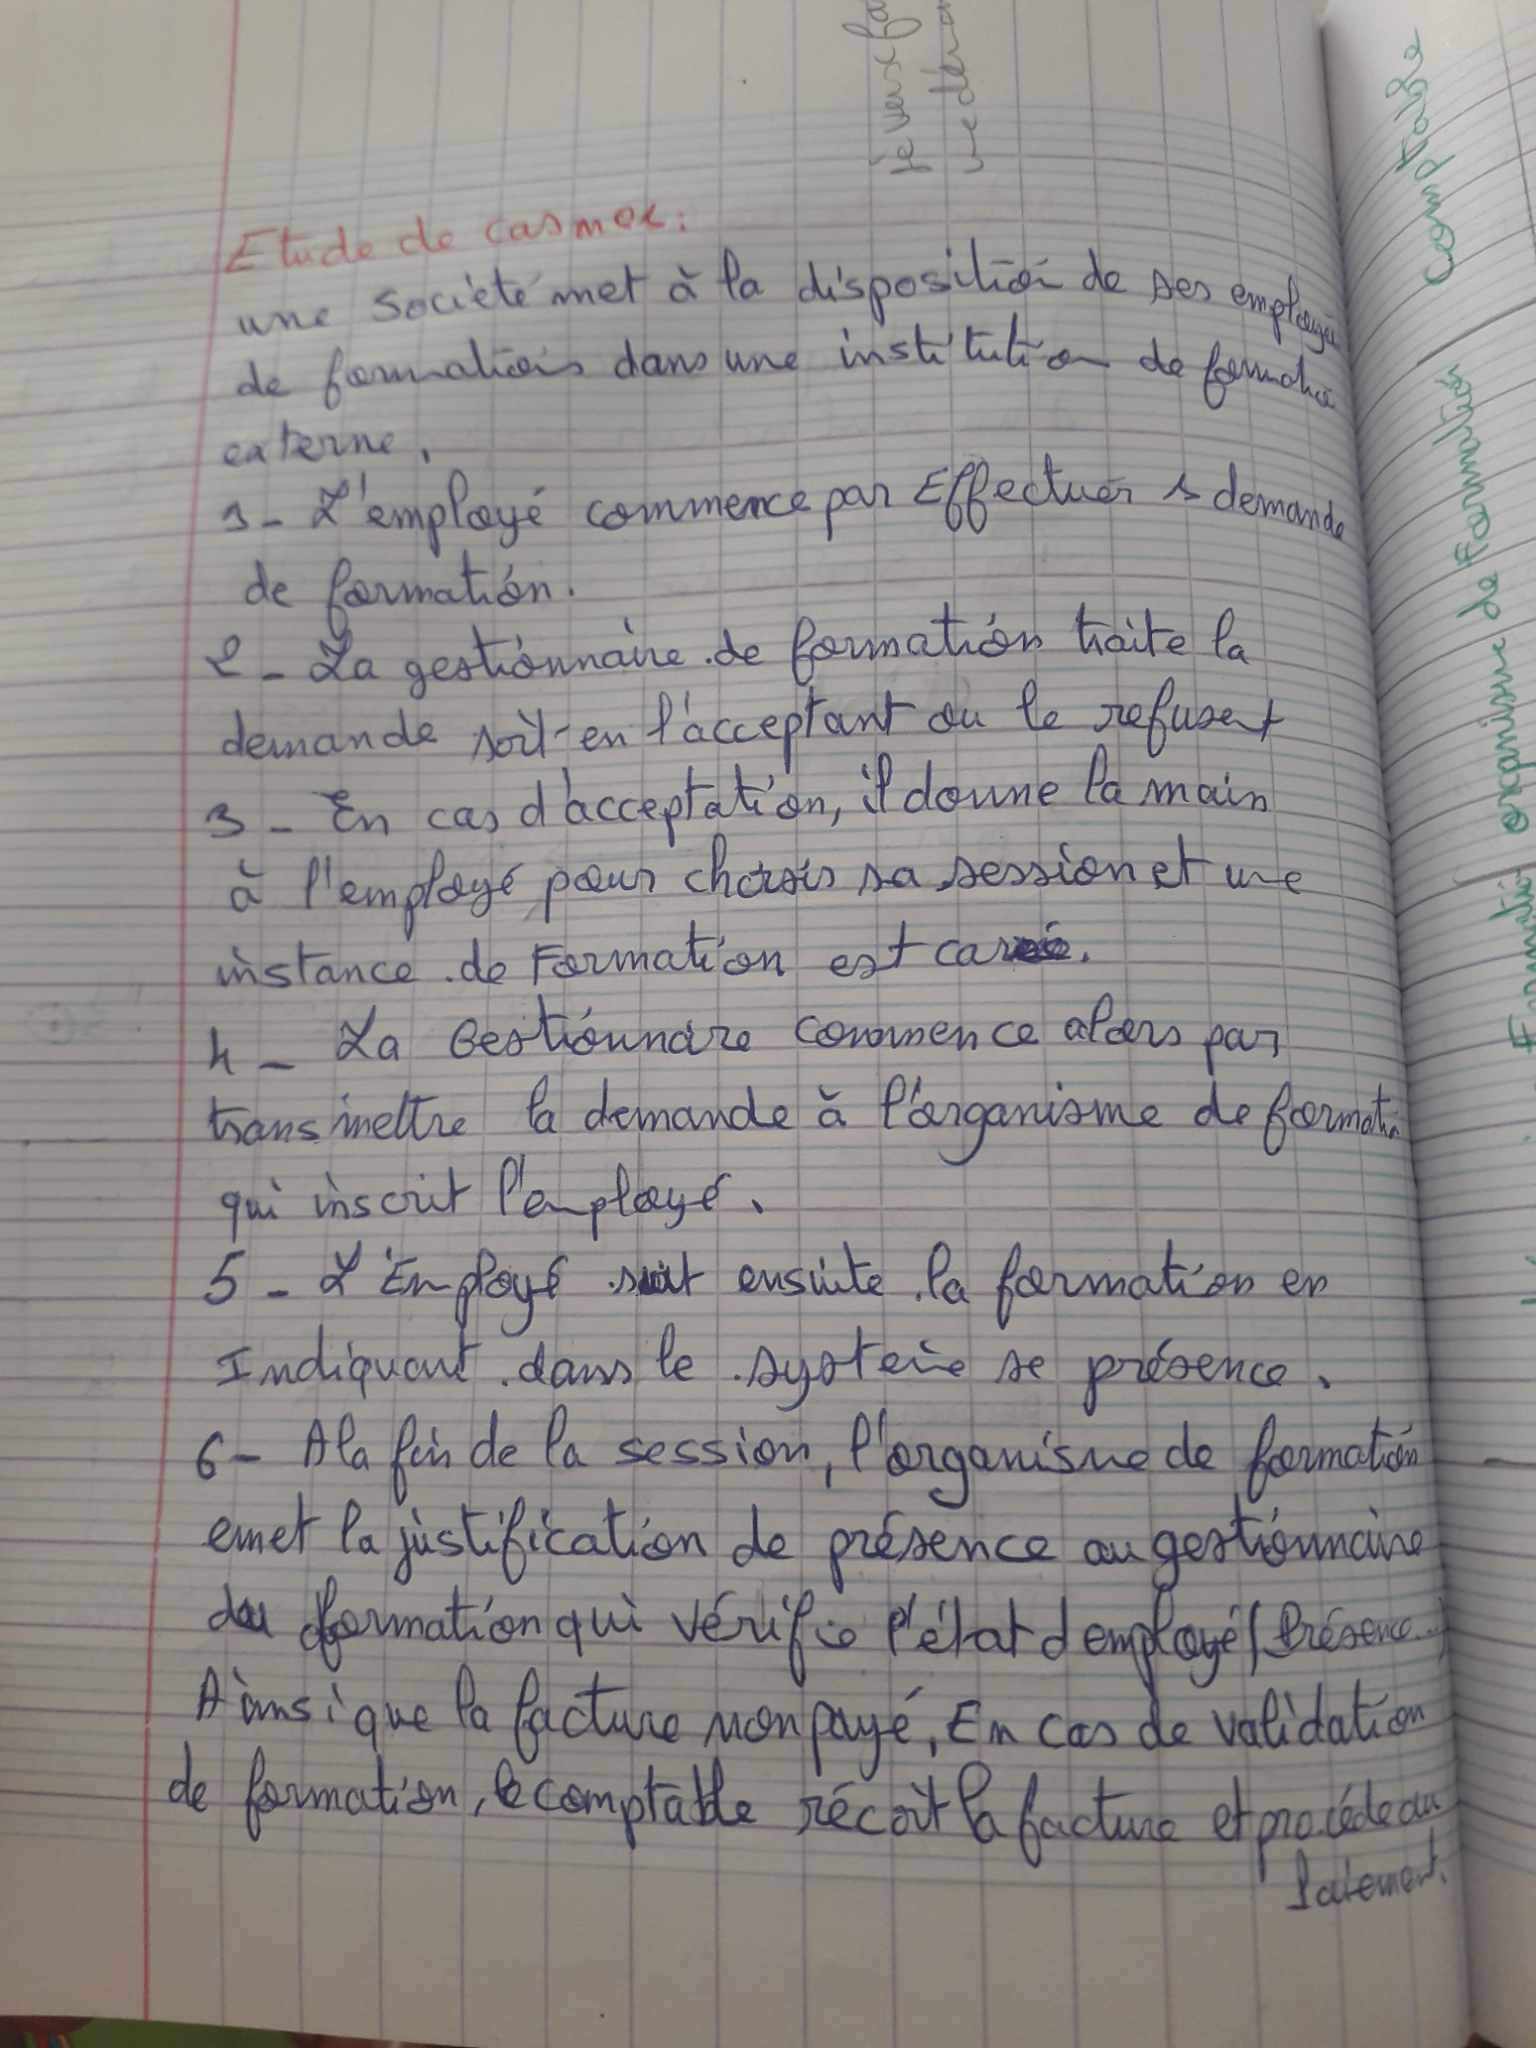 je veux fa
Etude de cas mox:
une société met à la disposition de ses employés
de formations dans une institution de formation
externe.
1- L'employé commence par Effectuer s demande
de formation.
2- La gestionnaire de formation traite la
demande soit en l'acceptant ou le refusent
3- En cas d'acceptation, il donne la main
à l'employé pour choisis sa session et une
instance de Formation est
4- La Gestionnaire commence alors par
transmettre la demande à l'organisme de formati
qui inscrit l'employé.
5- L'Employé suit ensuite la formation en
Indiquant dans le systeme se présence.
6- A la fin de la session, l'organisme de formation
emet la justification de présence au gestionnaire
du formation qui vérifie l'état d'employé (Présence..)
Ainsi que la facture non payé, En cas de validation
de formation, le comptable récoit la facture et procéde au
Paiement.
Comptable
organisme de Formation
Formatio